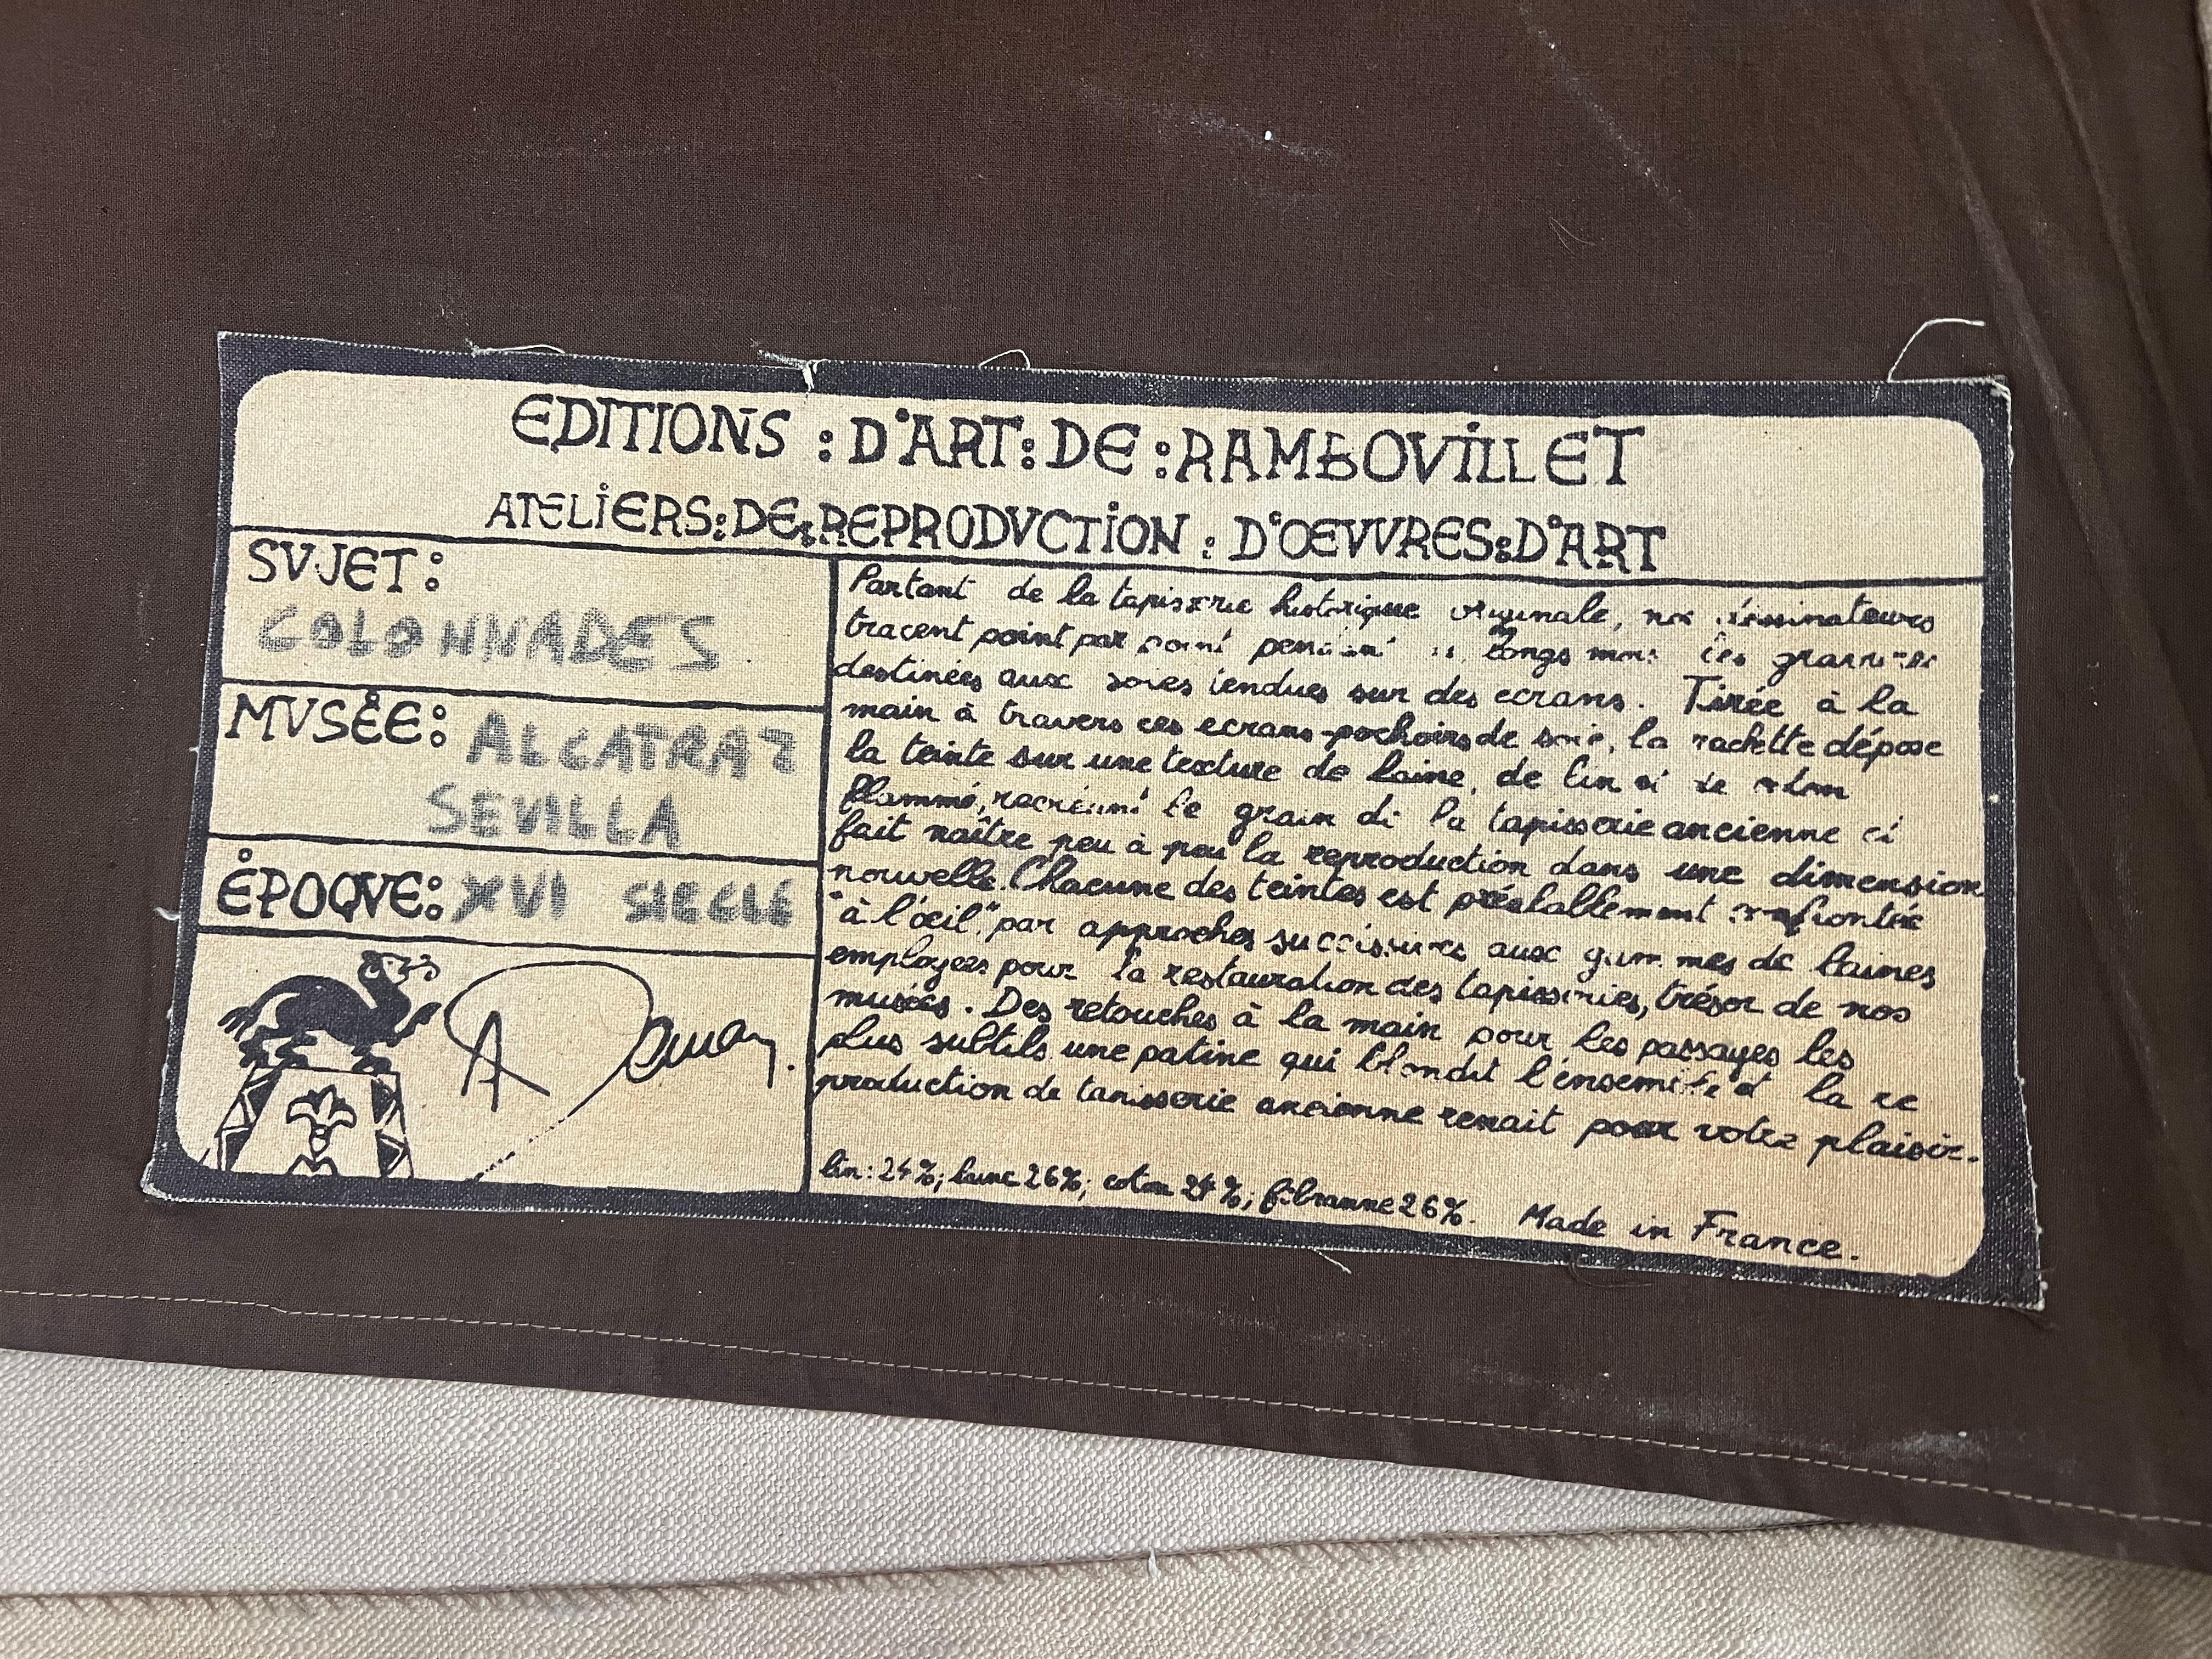 EDITIONS : D'ART : DE : RAMBOVILLET
ATELIERS : DE : REPRODVCTION : D'OEVVRES : D'ART
SVJET :
COLONNADES
MVSÉE : ALCATRAZ
SEVILLA
ÉPOQVE : XVI SIECLE
A
Partant de la tapisserie historique originale, nos dessinateurs
tracent point par point longs mois les
destinées aux soies tendues sur des ecrans. Tirée à la
main à travers ces ecrans-pochoirs de soie, la raclette dépose
la teinte sur une texture de laine, de lin et de
flammé, recréant le grain de la tapisserie ancienne et
fait naître peu à peu la reproduction dans une dimension
nouvelle. Chacune des teintes est préalablement
"à l'œil" par approches successives aux gammes de laines
employees pour la restauration des tapisseries, trésor de nos
musées. Des retouches à la main pour les passages les
plus subtils une patine qui blondit l'ensemble et la re
production de tapisserie ancienne renait pour votre plaisir.
lin : 24% ; laine 26% ; coton 24% ; fibranne 26%. Made in France.